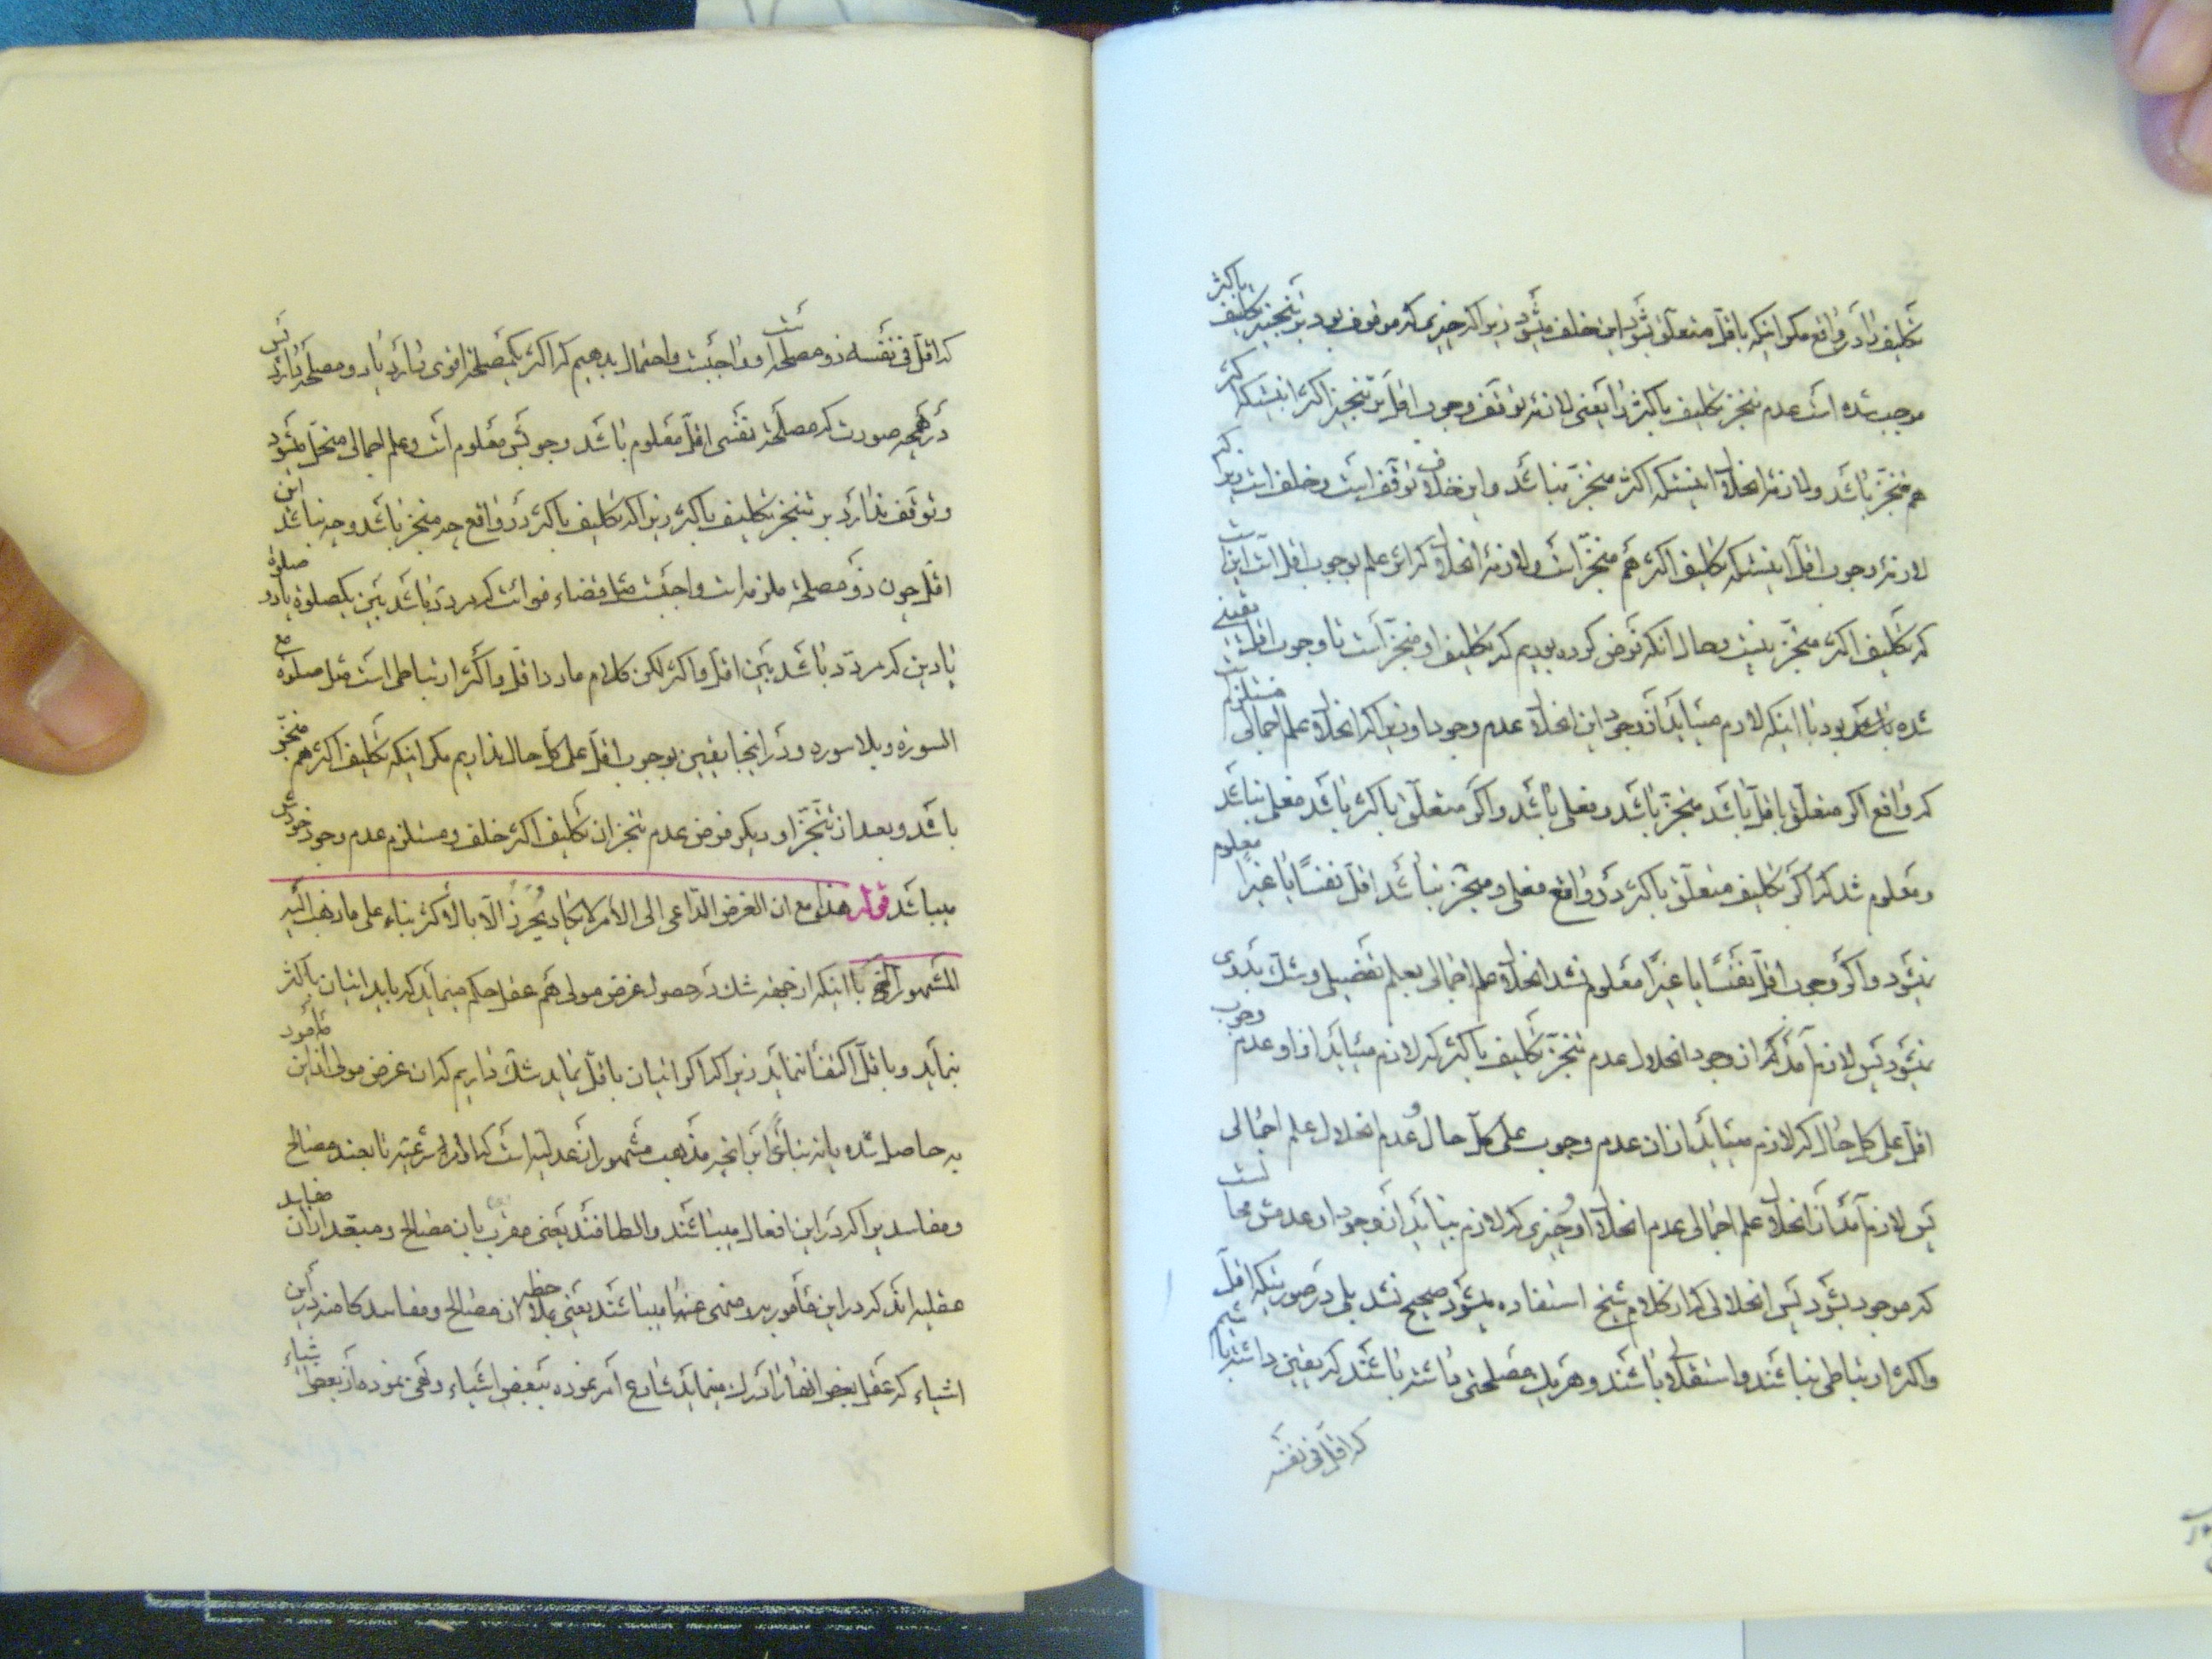 تکلیف را در واقع مگر اینکه باقل متعلق بشود این خلف میشود زیرا که چیزیکه موقوف بود بر تنجیز تکلیف باکثر
موجب شده است عدم تنجز تکلیف باکثر را یعنی لازمه توقف وجوب اقل بر تنجیز اکثر اینستکه اکثر
هم منجز باشد ولازمه انحلال اینستکه اکثر منجز نباشد و این خلاف توقف است و خلف است زیرا که
لازمه وجوب اقل اینستکه تکلیف اکثر هم منجز است ولازمه انحلال که اثر علم بوجوب اقل است اینست
که تکلیف اکثر منجز نیست و حال انکه فرض کرده بودیم که تکلیف او منجز است تا وجوب اقل یقینی
شده باشد بود با اینکه لازم میاید از وجود این انحلال عدم وجود او زیرا که انحلال علم اجمالی مستلزم است
که واقع اگر متعلق باقل باشد منجز باشد و فعلی باشد و اگر متعلق باکثر باشد فعلی نباشد
و معلوم شد که اگر تکلیف متعلق باکثر در واقع فعلی و منجز نباشد اقل نفسًا یا غیرًا معلوم
نمیشود و اگر وجوب اقل نفسًا یا غیرًا معلوم نشد انحلال علم اجمالی بعلم تفضیلی و شک بدوی
نمیشود پس لازم آمد که از وجود انحلال عدم تنجز تکلیف باکثر که لازم میاید از او عدم وجوب
اقل علی کل حال که لازم میاید از ان عدم وجوب علی کل حال و عدم انحلال علم اجمالی
پس لازم آمد از انحلال علم اجمالی عدم انحلال او و چیزی که لازم بیاید از وجود او عدمش محالست
که موجود بشود پس انحلالی که از کلام شیخ استفاده میشود صحیح نشد بلی در صورتیکه اقل
و اکثر ارتباطی نباشند و استقلالی باشند و هر یک مصلحتی داشته باشند که یقین داشته باشیم
که اقل فی نفسه
که اقل فی نفسه ذو مصلحت است و واجبست و احتمال بدهیم که اکثر یکمصلحة اقوی دارد یا دو مصلحة دارد پس
در همچه صورت که مصلحة نفسی اقل معلوم باشد وجوبش معلوم است و علم اجمالی منحل میشود
و توقف ندارد بر تنجز تکلیف باکثر زیرا که تکلیف باکثر در واقع چه منجز باشد و چه نباشد این
اقل چون ذو مصلحة ملزمه است واجبست مثل قضاء فوائت که مردد باشد بین یکصلوة یا دو صلوة
یا دین که مردد باشد بین اقل و اکثر لکن کلام ما در اقل و اکثر ارتباطی است مثل صلوة مع
السورة و بلا سوره و در اینجا یقین بوجوب اقل علی کل حال نداریم مگر اینکه تکلیف اکثر هم منجز
باشد و بعد از تنجز او دیگر فرض عدم تنجز ان تکلیف اکثر خلف و مستلزم عدم وجود خودش
میباشد قوله هذا مع ان الغرض الداعی الی الأمر لا یکاد یُحرز الّا بالاکثر بناء علی ما ذهب الیه
المشهور الخ با اینکه از جهة شک در حصول غرض مولی هم عقل حکم مینماید که باید اتیان باکثر
بنماید و باقل اکتفا ننماید زیرا که اگر اتیان باقل نماید شک داریم که ان غرض مولی از این مامور
به حاصل شده یا نه بناءً علی انچه مذهب مشهور از عدلیه است که اوامر شرعیه تابعند مصالح
و مفاسدیرا که در این افعال میباشند و الطافند یعنی مقرب بان مصالح و مبعد از ان مفاسد
عقلیه اند که در این مأمور به و منهی عنها میباشند یعنی بملاحظه ان مصالح و مفاسد کامنه در این
اشیاء که عقل بعض انها را درک مینماید شارع امر نموده ببعض اشیاء و نهی نموده از بعض اشیاء